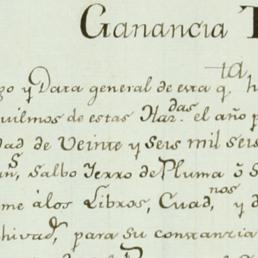 Ganancia T
go y Data general de esta q. h
ta,
uilmos de estas Har.das el año p
dad de Veinte y seis mil seis
an.s, salbo Yerro de Pluma ō S
me álos Libros, Cuad.nos y d
chivad, para su constancia